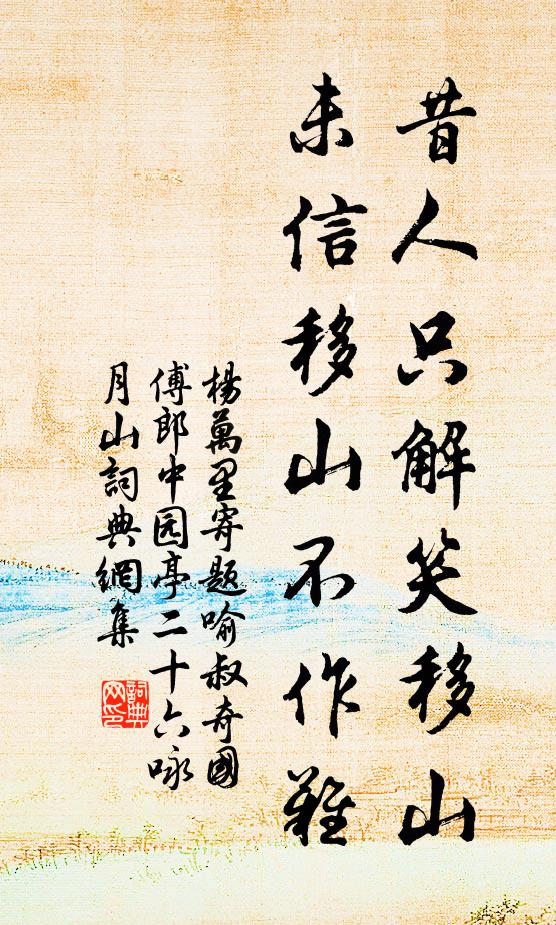 昔人只解笑移山
未信移山不作難
楊萬里寄題喻叔奇國
傅郎中园亭二十六咏
月山詞典網集
詞典
网印